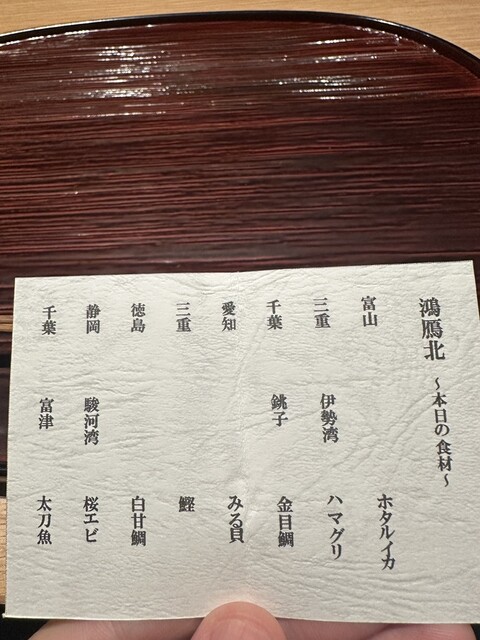 鴻鴈北 〜本日の食材〜
富山 ホタルイカ
三重 伊勢湾 ハマグリ
千葉 銚子 金目鯛
愛知 みる貝
三重 鰹
徳島 白甘鯛
静岡 駿河湾 桜エビ
千葉 富津 太刀魚